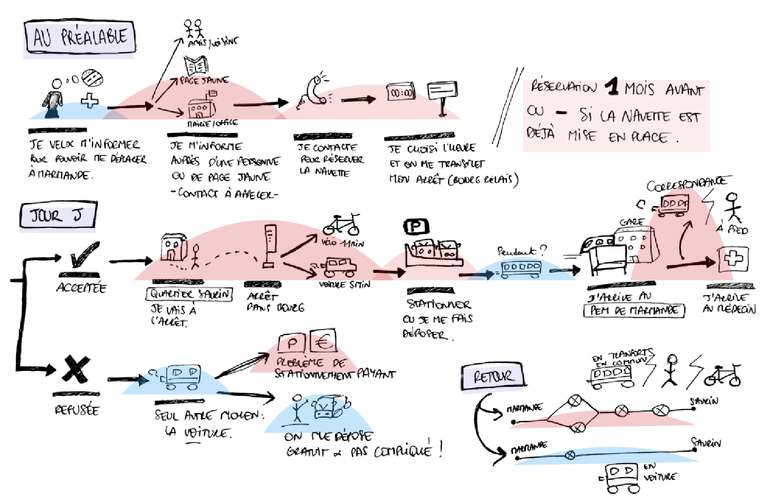 AU PRÉALABLE
AMIS/VOISINS
PAGE JAUNE
MAIRIE/OFFICE
00:00
JE VEUX M'INFORMER
POUR POUVOIR ME DÉPLACER
À MARMANDE.
JE M'INFORME
AUPRÈS D'UNE PERSONNE
OU DE PAGE JAUNE
- CONTACT À APPELER -
JE CONTACTE
POUR RÉSERVER
LA NAVETTE
JE CHOISI L'HEURE
ET ON ME TRANSMET
MON ARRÊT (BOURG RELAIS)
RÉSERVATION 1 MOIS AVANT
OU - SI LA NAVETTE EST
DÉJÀ MISE EN PLACE.
JOUR J
ACCEPTÉE
QUARTIER SAURIN
JE VAIS À
L'ARRÊT.
ARRÊT
DANS BOURG
VÉLO 11MIN
VOITURE 5MIN
P
STATIONNER
OU JE ME FAIS
DÉPOSER.
Pendant ?
CORRESPONDANCE
GARE
À PIED
J'ARRIVE AU
PEM DE MARMANDE
J'ARRIVE
AU MÉDECIN
REFUSÉE
SEUL AUTRE MOYEN:
LA VOITURE.
P €
PROBLÈME DE
STATIONNEMENT PAYANT
ON ME DÉPOSE
GRATUIT & PAS COMPLIQUÉ !
RETOUR
EN TRANSPORTS
EN COMMUN
MARMANDE
SAURIN
MARMANDE
SAURIN
EN
VOITURE